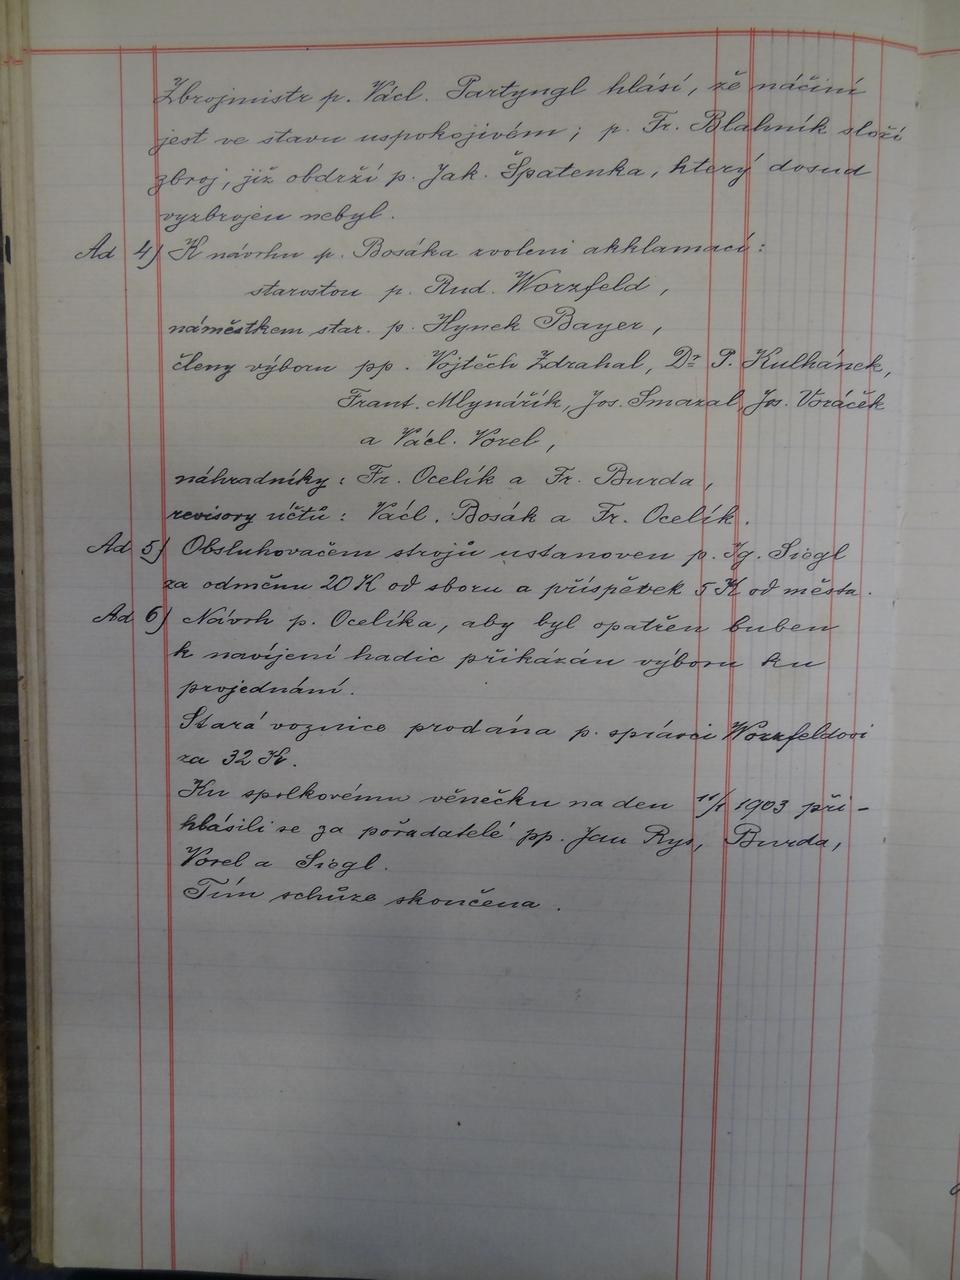 Zbrojmistr p. Václ. Partyngl hlásí, že náčiní
jest ve stavu uspokojivém; p. Fr. Blahník složí
zbroj, již obdrží p. Jak. Špatenka, který dosud
vyzbrojen nebyl.
Ad 4) K návrhu p. Bosáka zvoleni akklamací:
starostou p. Rud. Worzfeld,
náměstkem star. p. Hynek Bayer,
členy výboru pp. Vojtěch Zdrahal, Dr P. Kulhánek,
Frant. Mlynářík, Jos. Smazal, Jos. Voráček
a Václ. Vorel,
náhradníky: Fr. Ocelík a Fr. Burda,
revisory účtů: Václ. Bosák a Fr. Ocelík.
Ad 5) Obsluhovačem strojů ustanoven p. Ig. Siegl
za odměnu 20 K od sboru a příspěvek 5 K od města.
Ad 6) Návrh p. Ocelíka, aby byl opatřen buben
k navíjení hadic přikázán výboru ku
projednání.
Stará voznice prodána p. správci Worzfeldovi
za 32 K.
Ku spolkovému věnečku na den 11/1 1903 při-
hlásili se za pořadatelé pp. Jan Rys, Burda,
Vorel a Siegl.
Tím schůze skončena.